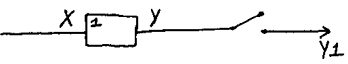 X 1 Y
Y1